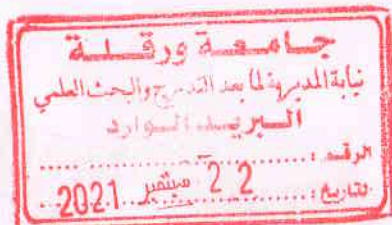 جامعة ورقلة
نيابة المديرية لما بعد التدرج والبحث العلمي
البريد الوارد
الرقم : ....................
التاريخ : 2 2 سبتمبر 2021